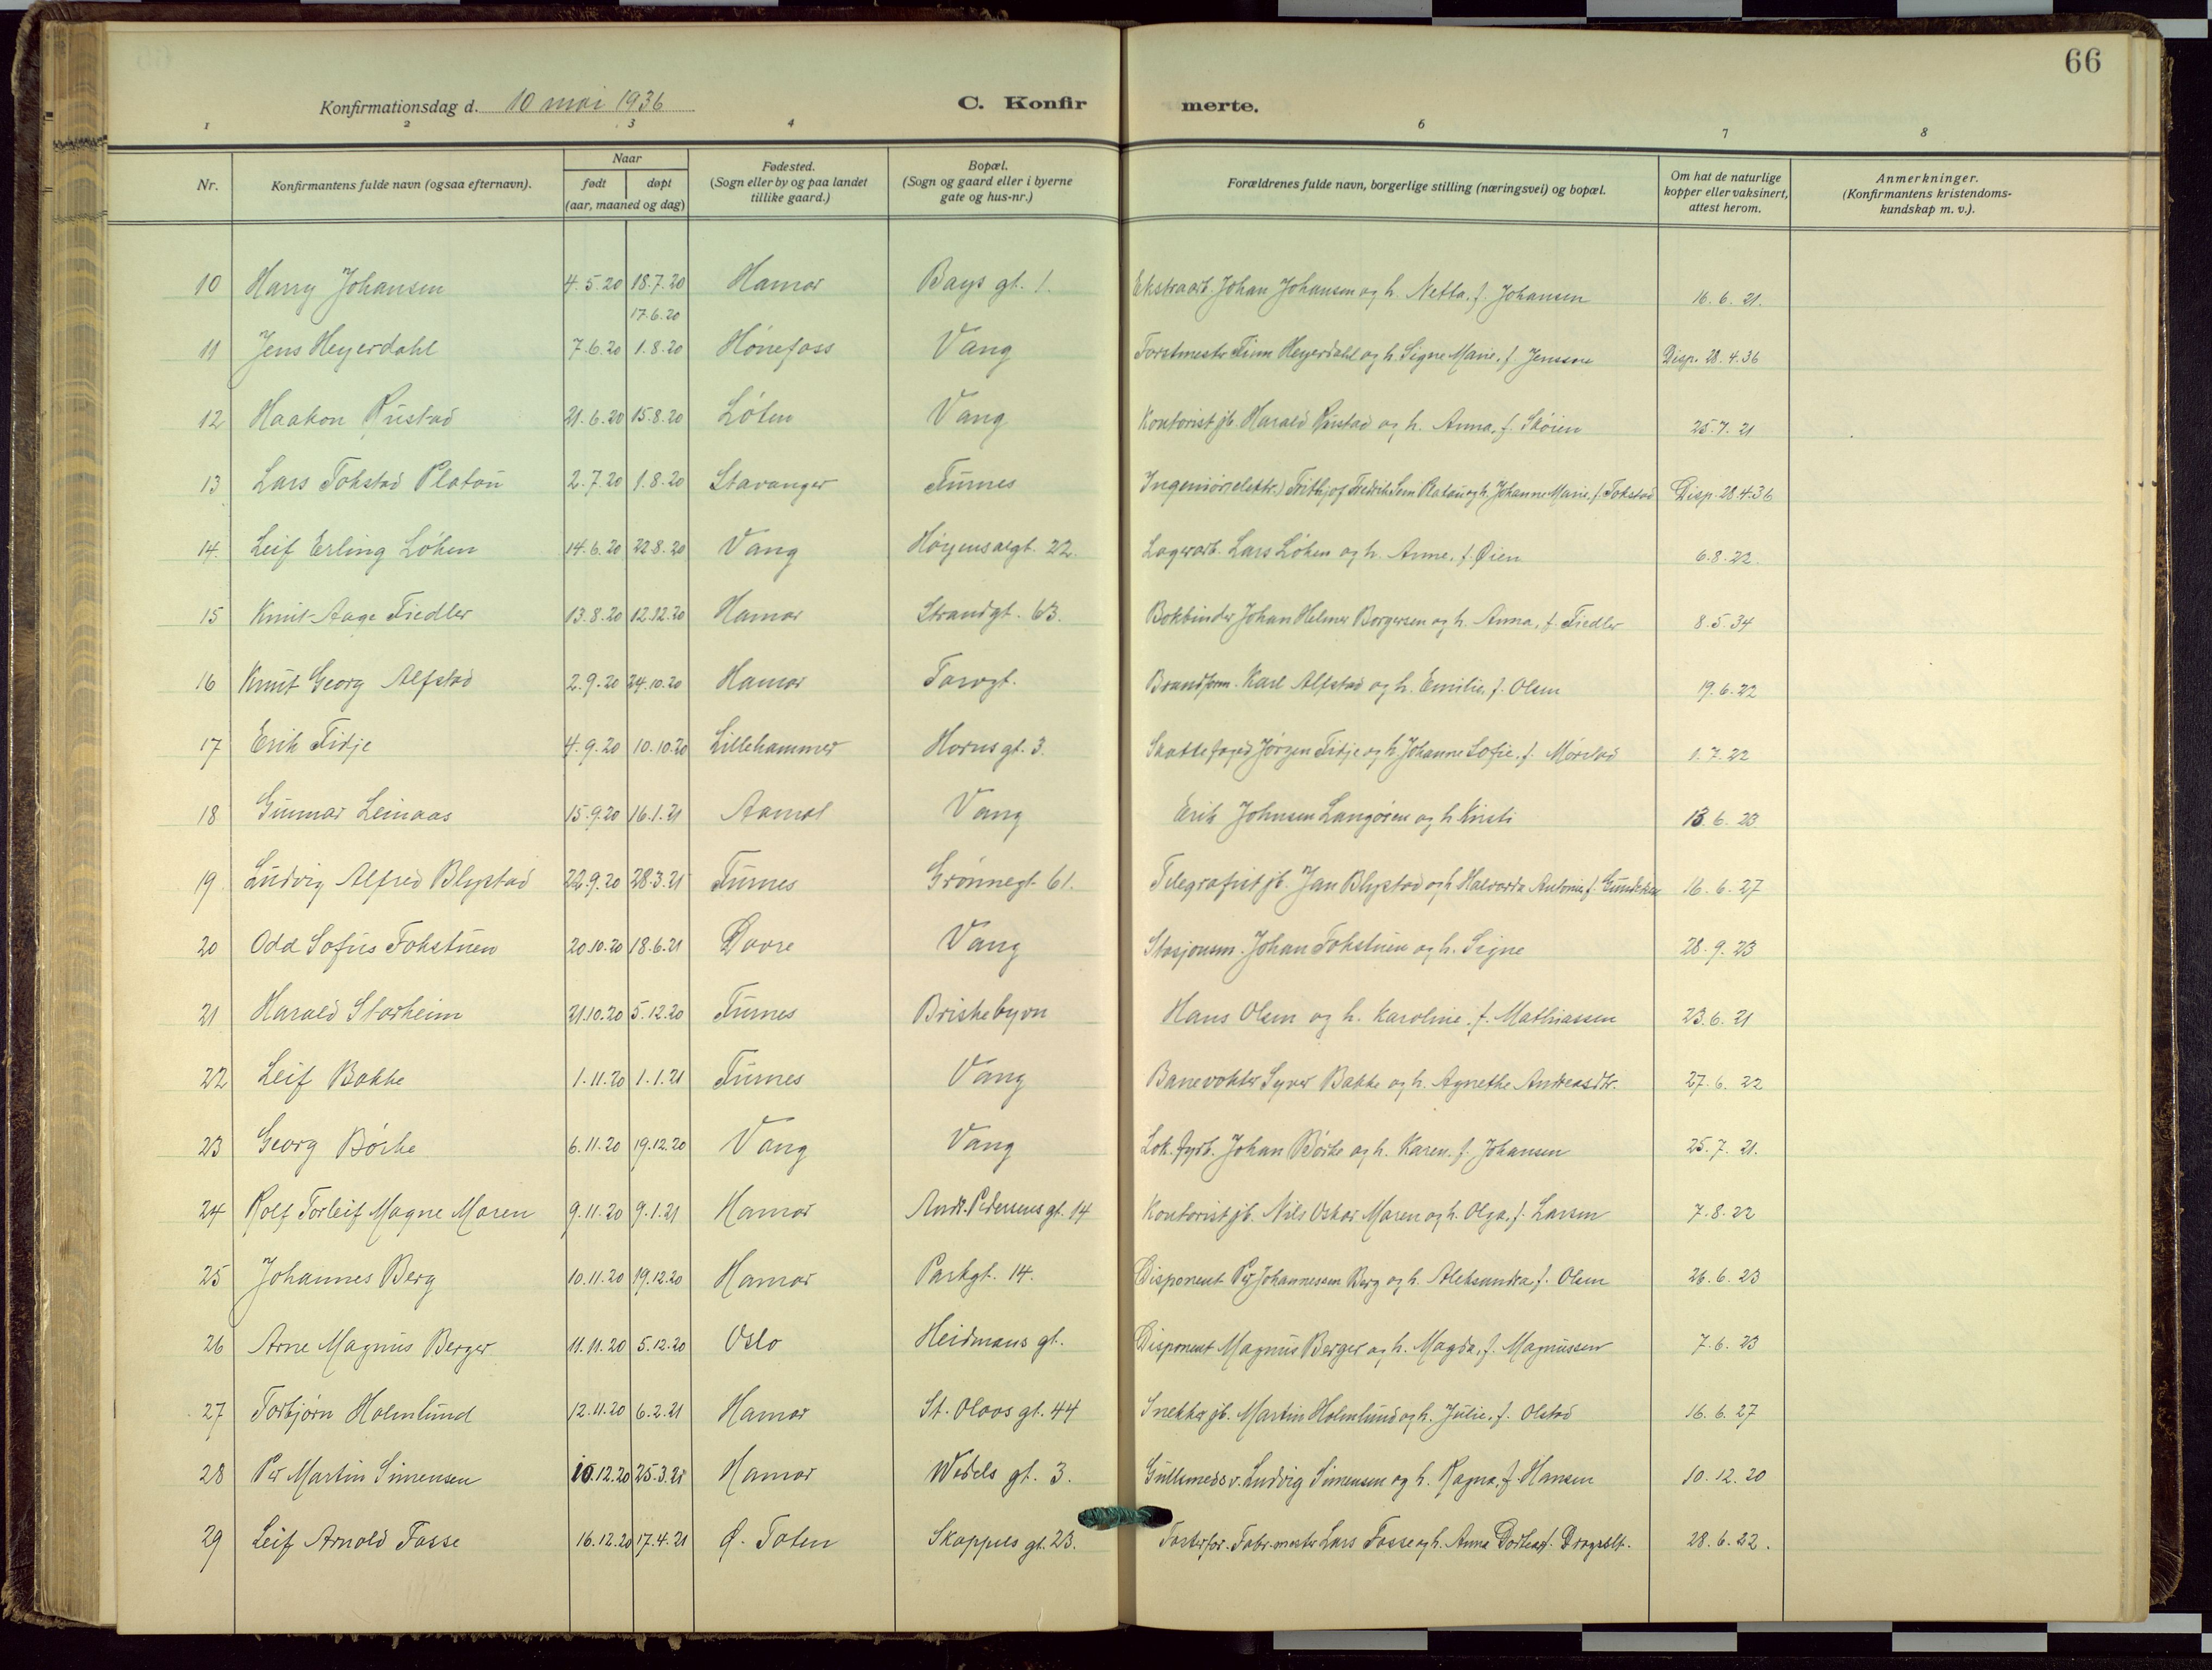 66
Konfirmationsdag d. 10 mai 1936 C. Konfir merte.
1 2 3 4 6 7 8
Nr. Konfirmantens fulde navn (ogsaa efternavn). Naar født døpt (aar, maaned og dag) Fødested. (Sogn eller by og paa landet tillike gaard.) Bopæl. (Sogn og gaard eller i byerne gate og hus-nr.) Forældrenes fulde navn, borgerlige stilling (næringsvei) og bopæl. Om hat de naturlige kopper eller vaksinert, attest herom. Anmerkninger. (Konfirmantens kristendoms-kundskap m. v.).
10 Harry Johansen 4.5.20 18.7.20 Hamar Bays gt. 1. Ekstraarb. Johan Johansen og h. Netta, f. Johansen 16.6.21.
17.6.20
11 Jens Heyerdahl 7.6.20 1.8.20 Hönefoss Vang Forstmester Finn Heyerdahl og h. Signe Marie, f. Jenssen Disp. 28.4.36
12 Haakon Rustad 21.6.20 15.8.20 Löten Vang Kontorist jb. Harald Rustad og h. Anna, f. Skóien 25.7.21
13 Lars Tokstad Platou 2.7.20 1.8.20 Stavanger Furnes Ingeniör (elektr.) Frithjof Fredrik Sem Platou og h. Johanne Marie, f. Tokstad Disp. 28.4.36
14. Leif Erling Löken 14.6.20 22.8.20 Vang Höyensalgt. 22. Lagerarb. Lars Löken og h. Anne, f. Öien 6.8.22.
15 Knut Aage Fiedler 13.8.20 12.12.20 Hamar Strandgt. 63. Bokbinder Johan Helmer Borgersen og h. Anna, f. Fiedler 8.5.34
16 Knut Georg Alfstad 2.9.20 24.10.20 Hamar Torvgt. Brandform. Karl Alfstad og h. Emilie, f. Olsen 19.6.22
17 Erik Tidje 4.9.20 10.10.20 Lillehammer Hornsgt. 3. Skattefoged Jörgen Tidje og h. Johanne Sofie, f. Mörstad 1.7.22
18 Gunnar Leinaas 15.9.20 16.1.21 Aamot Vang Erik Johnsen Langören og h. Kristi 13.6.23
19 Ludvig Alfred Blystad 22.9.20 28.3.21 Furnes Grönnegt. 61. Telegrafist jb. Jan Blystad og h. Halvarda Antonie, f. Gundersen 16.6.27
20 Odd Sofus Fokstuen 20.10.20 18.6.21 Dovre Vang Stasjonsm. Johan Fokstuen og h. Signe 28.9.23
21 Harald Storheim 21.10.20 5.12.20 Furnes Briskebyen Hans Olsen og h. Karoline, f. Mathiassen 23.6.21
22 Leif Bakke 1.11.20 1.1.21 Furnes Vang Banevokter Syver Bakke og h. Agnethe Andreasdtr. 27.6.22
23 Georg Börke 6.11.20 19.12.20 Vang Vang Lok.fyrb. Johan Börke og h. Karen, f. Johansen 25.7.21.
24 Rolf Torleif Magne Moren 9.11.20 9.1.21 Hamar Andr. Pedersens gt. 14 Kontorist jb. Nils Oskar Moren og h. Olga, f. Larsen 7.8.22
25 Johannes Berg 10.11.20 19.12.20 Hamar Parkgt. 14. Disponent Per Johannessen Berg og h. Aleksandra, f. Olsen 26.6.23
26 Arne Magnus Berger 11.11.20 5.12.20 Oslo Heidmans gt. Disponent Magnus Berger og h. Magda, f. Magnussen 7.6.23
27 Torbjörn Holmlund 12.11.20 6.2.21 Hamar St. Olavs gt. 44 Snekker jb. Martin Holmlund og h. Julie, f. Olstad 16.6.27
28 Per Martin Simensen 10.12.20 25.3.21 Hamar Wedels gt. 3. Gullsmedsv. Ludvig Simensen og h. Ragna, f. Hansen 10.12.20
29 Leif Arnold Fosse 16.12.20 17.4.21 Ö. Toten Skappels gt. 23. Fosterfor. Fabr.mester Lars Fosse og h. Anna Dorthea, f. 28.6.22.